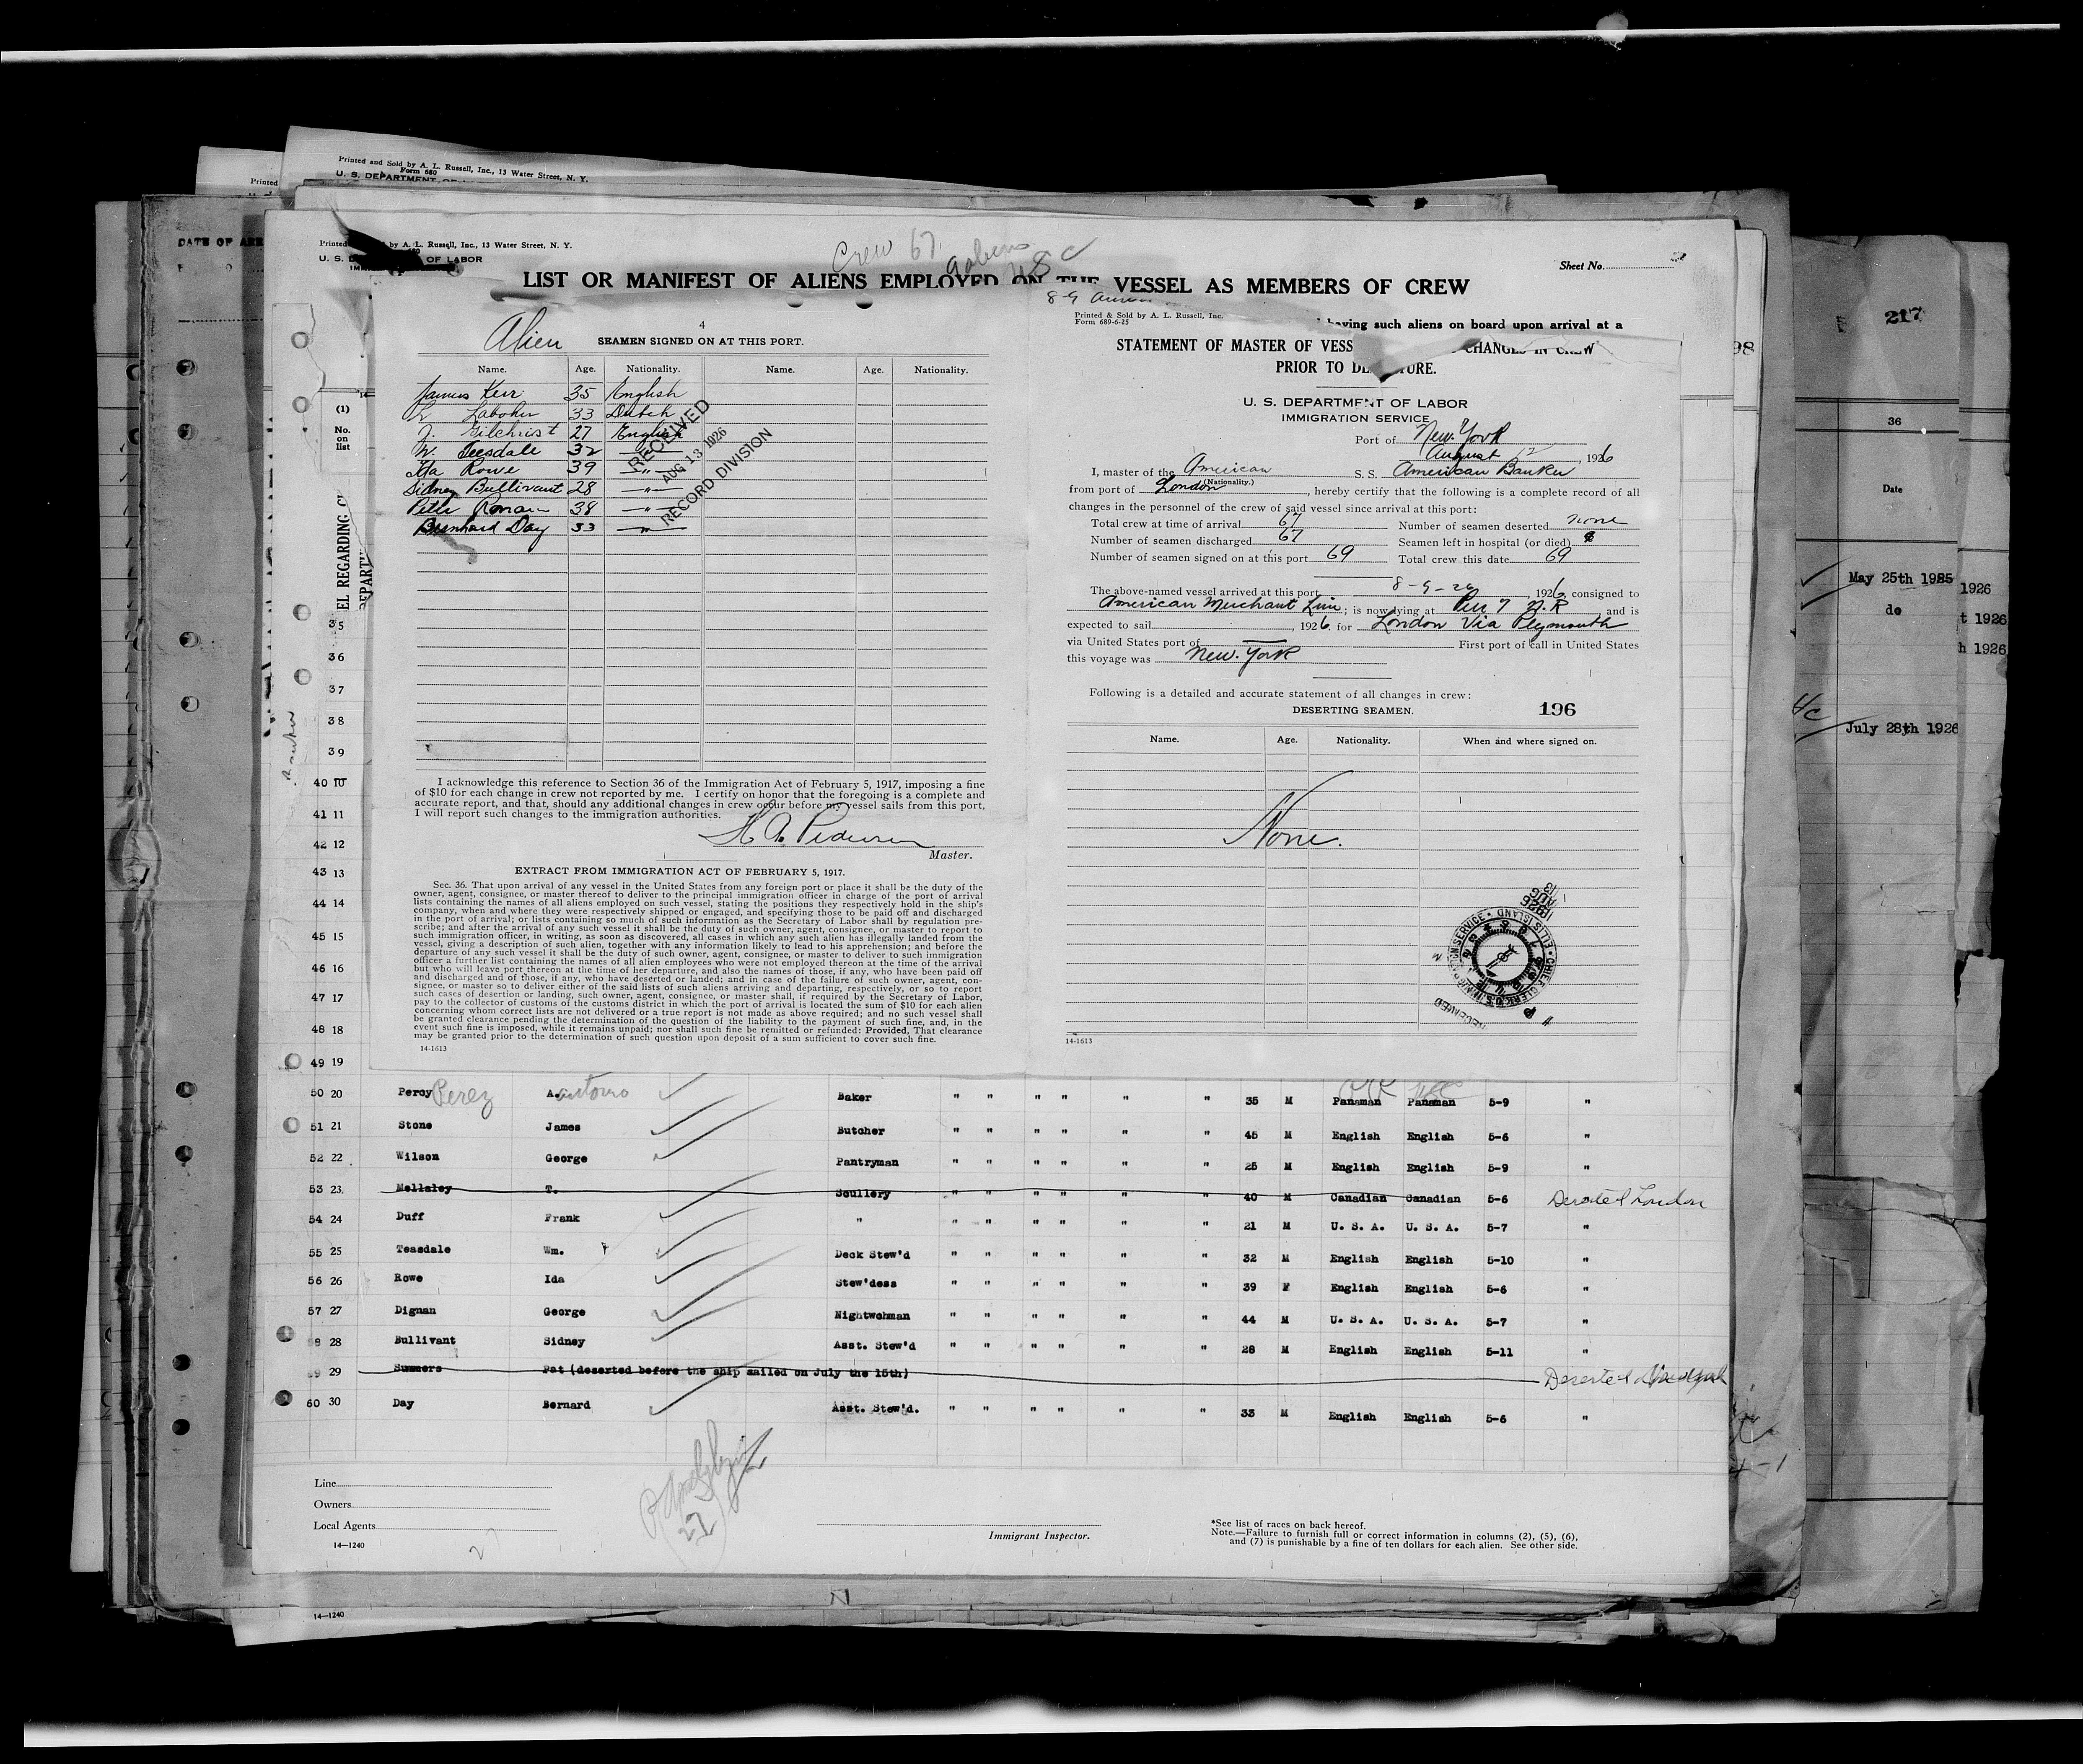 Printed and Sold by A. L. Russell, Inc., 13 Water Street, N. Y.
Form 680
Printed
U. S. DEPARTMENT OF
DATE OF
Printed by A. L. Russell, Inc., 13 Water Street, N. Y.
U. S. D OF LABOR
Crew 67
LIST OR MANIFEST OF ALIENS EMPLOYED ON THE VESSEL AS MEMBERS OF CREW
Sheet No.
having such aliens on board upon arrival at a
217
98
(1)
No.
on
list
EL REGARDING
DEPART
4
Alien
SEAMEN SIGNED ON AT THIS PORT.
Name. Age. Nationality. Name. Age. Nationality.
James Kerr 35 English
33 Dutch
J. Gilchrist 27 English
W. Teesdale 32 "
Ida Rowe 39 "
Sidney Bullivant 28 "
38 "
Bernhard Day 33 "
RECEIVED
AUG 13 1926
RECORD DIVISION
I acknowledge this reference to Section 36 of the Immigration Act of February 5, 1917, imposing a fine
of $10 for each change in crew not reported by me. I certify on honor that the foregoing is a complete and
accurate report, and that, should any additional changes in crew occur before my vessel sails from this port,
I will report such changes to the immigration authorities.
H. A. Pedersen
Master.
EXTRACT FROM IMMIGRATION ACT OF FEBRUARY 5, 1917.
Sec. 36. That upon arrival of any vessel in the United States from any foreign port or place it shall be the duty of the
owner, agent, consignee, or master thereof to deliver to the principal immigration officer in charge of the port of arrival
lists containing the names of all aliens employed on such vessel, stating the positions they respectively hold in the ship's
company, when and where they were respectively shipped or engaged, and specifying those to be paid off and discharged
in the port of arrival; or lists containing so much of such information as the Secretary of Labor shall by regulation pre-
scribe; and after the arrival of any such vessel it shall be the duty of such owner, agent, consignee, or master to report to
such immigration officer, in writing, as soon as discovered, all cases in which any such alien has illegally landed from the
vessel, giving a description of such alien, together with any information likely to lead to his apprehension; and before the
departure of any such vessel it shall be the duty of such owner, agent, consignee, or master to deliver to such immigration
officer a further list containing the names of all alien employees who were not employed thereon at the time of the arrival
but who will leave port thereon at the time of her departure, and also the names of those, if any, who have been paid off
and discharged and of those, if any, who have deserted or landed; and in case of the failure of such owner, agent, con-
signee, or master so to deliver either of the said lists of such aliens arriving and departing, respectively, or so to report
such cases of desertion or landing, such owner, agent, consignee, or master shall, if required by the Secretary of Labor,
pay to the collector of customs of the customs district in which the port of arrival is located the sum of $10 for each alien
concerning whom correct lists are not delivered or a true report is not made as above required; and no such vessel shall
be granted clearance pending the determination of the question of the liability to the payment of such fine, and, in the
event such fine is imposed, while it remains unpaid; nor shall such fine be remitted or refunded: Provided, That clearance
may be granted prior to the determination of such question upon deposit of a sum sufficient to cover such fine.
14-1613
Printed & Sold by A. L. Russell, Inc.
Form 689-6-25
STATEMENT OF MASTER OF VESS CHANGES IN CREW
PRIOR TO DEPARTURE.
U. S. DEPARTMENT OF LABOR
IMMIGRATION SERVICE
Port of New York
August 12, 1926
I, master of the American S. S. American Banker
(Nationality.)
from port of London, hereby certify that the following is a complete record of all
changes in the personnel of the crew of said vessel since arrival at this port:
Total crew at time of arrival 67 Number of seamen deserted none
Number of seamen discharged 67 Seamen left in hospital (or died)
Number of seamen signed on at this port 69 Total crew this date 69
The above-named vessel arrived at this port 8-9-26, 1926, consigned to
American Merchant Line; is now lying at Pier 7 N.R, and is
expected to sail, 1926 for London Via Plymouth
via United States port of First port of call in United States
this voyage was New. York
Following is a detailed and accurate statement of all changes in crew:
DESERTING SEAMEN. 196
Name. Age. Nationality. When and where signed on.
None.
14-1613
RECEIVED
CHIEF CLERK
ELLIS ISLAND
1926 AUG 13
36
Date
May 25th 1985
do
July 28th 1926
1926
t 1926
h 1926
35
36
37
38
39
40 10
41 11
42 12
43 13
44 14
45 15
46 16
47 17
48 18
49 19
50 20 Percy Perez A. Antonio Baker " " " " " " 35 M Panaman Panaman 5-9 "
51 21 Stone James Butcher " " " " " " 45 M English English 5-6 "
52 22 Wilson George Pantryman " " " " " " 25 M English English 5-9 "
53 23 Mellaley T. Scullery " " " " " " 40 M Canadian Canadian 5-6 Deserted London
54 24 Duff Frank " " " " " " " 21 M U. S. A. U. S. A. 5-7 "
55 25 Teasdale Wm. Deck Stew'd " " " " " " 32 M English English 5-10 "
56 26 Rowe Ida Stew'dess " " " " " " 39 F English English 5-6 "
57 27 Dignan George Nightwchman " " " " " " 44 M U. S. A. U. S. A. 5-7 "
58 28 Bullivant Sidney Asst. Stew'd " " " " " " 28 M English English 5-11 "
59 29 Summers Pat (deserted before the ship sailed on July the 15th) Deserted
60 30 Day Bernard Asst. Stew'd. " " " " " " 33 M English English 5-6 "
27
Line
Owners
Local Agents
14—1240
Immigrant Inspector.
*See list of races on back hereof.
Note.—Failure to furnish full or correct information in columns (2), (5), (6),
and (7) is punishable by a fine of ten dollars for each alien. See other side.
14—1240